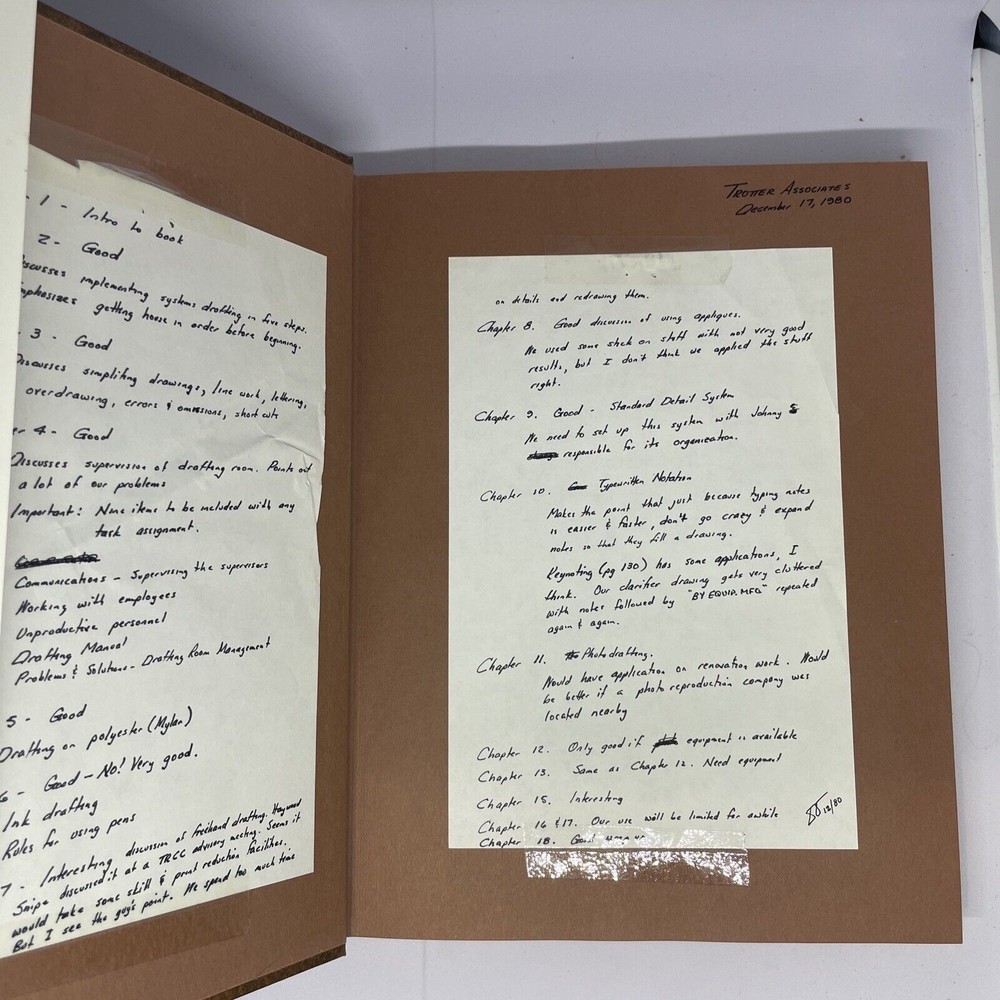 1 - Intro to book
2 - Good
Discusses implementing systems drafting in five steps.
Emphasizes getting house in order before beginning.
3 - Good
Discusses simplifing drawings, line work, lettering,
overdrawing, errors & omissions, short cuts
4 - Good
Discusses supervision of drafting room. Points out
a lot of our problems
Important: Nine items to be included with any
task assignment.
Communications - Supervising the supervisors
Working with employees
Unproductive personnel
Drafting Manual
Problems & Solutions - Drafting Room Management
5 - Good
Drafting on polyester (Mylar)
6 - Good - No! Very good.
Ink drafting
Rules for using pens
7 - Interesting discussion of freehand drafting. Haywood
Snipe discussed it at a TRCC advisory meeting. Seems it
would take some skill & print reduction facilities.
But I see the guy's point. We spend too much time
TROTTER ASSOCIATES
December 17, 1980
on details and redrawing them.
Chapter 8. Good discussion of using appliques.
We used some stick on stuff with not very good
results, but I don't think we applied the stuff
right.
Chapter 9. Good - Standard Detail System
We need to set up this system with Johnny
responsible for its organization.
Chapter 10. Typewritten Notation
Makes the point that just because typing notes
is easier & faster, don't go crazy & expand
notes so that they fill a drawing.
Keynoting (pg 130) has some applications, I
think. Our clarifier drawing gets very cluttered
with notes followed by "BY EQUIP. MFG" repeated
again & again.
Chapter 11. Photodrafting.
Would have application on renovation work. Would
be better if a photo reproduction company was
located nearby
Chapter 12. Only good if equipment is available
Chapter 13. Same as Chapter 12. Need equipment
Chapter 15. Interesting
Chapter 16 & 17. Our use will be limited for awhile
12/80
Chapter 18. Good